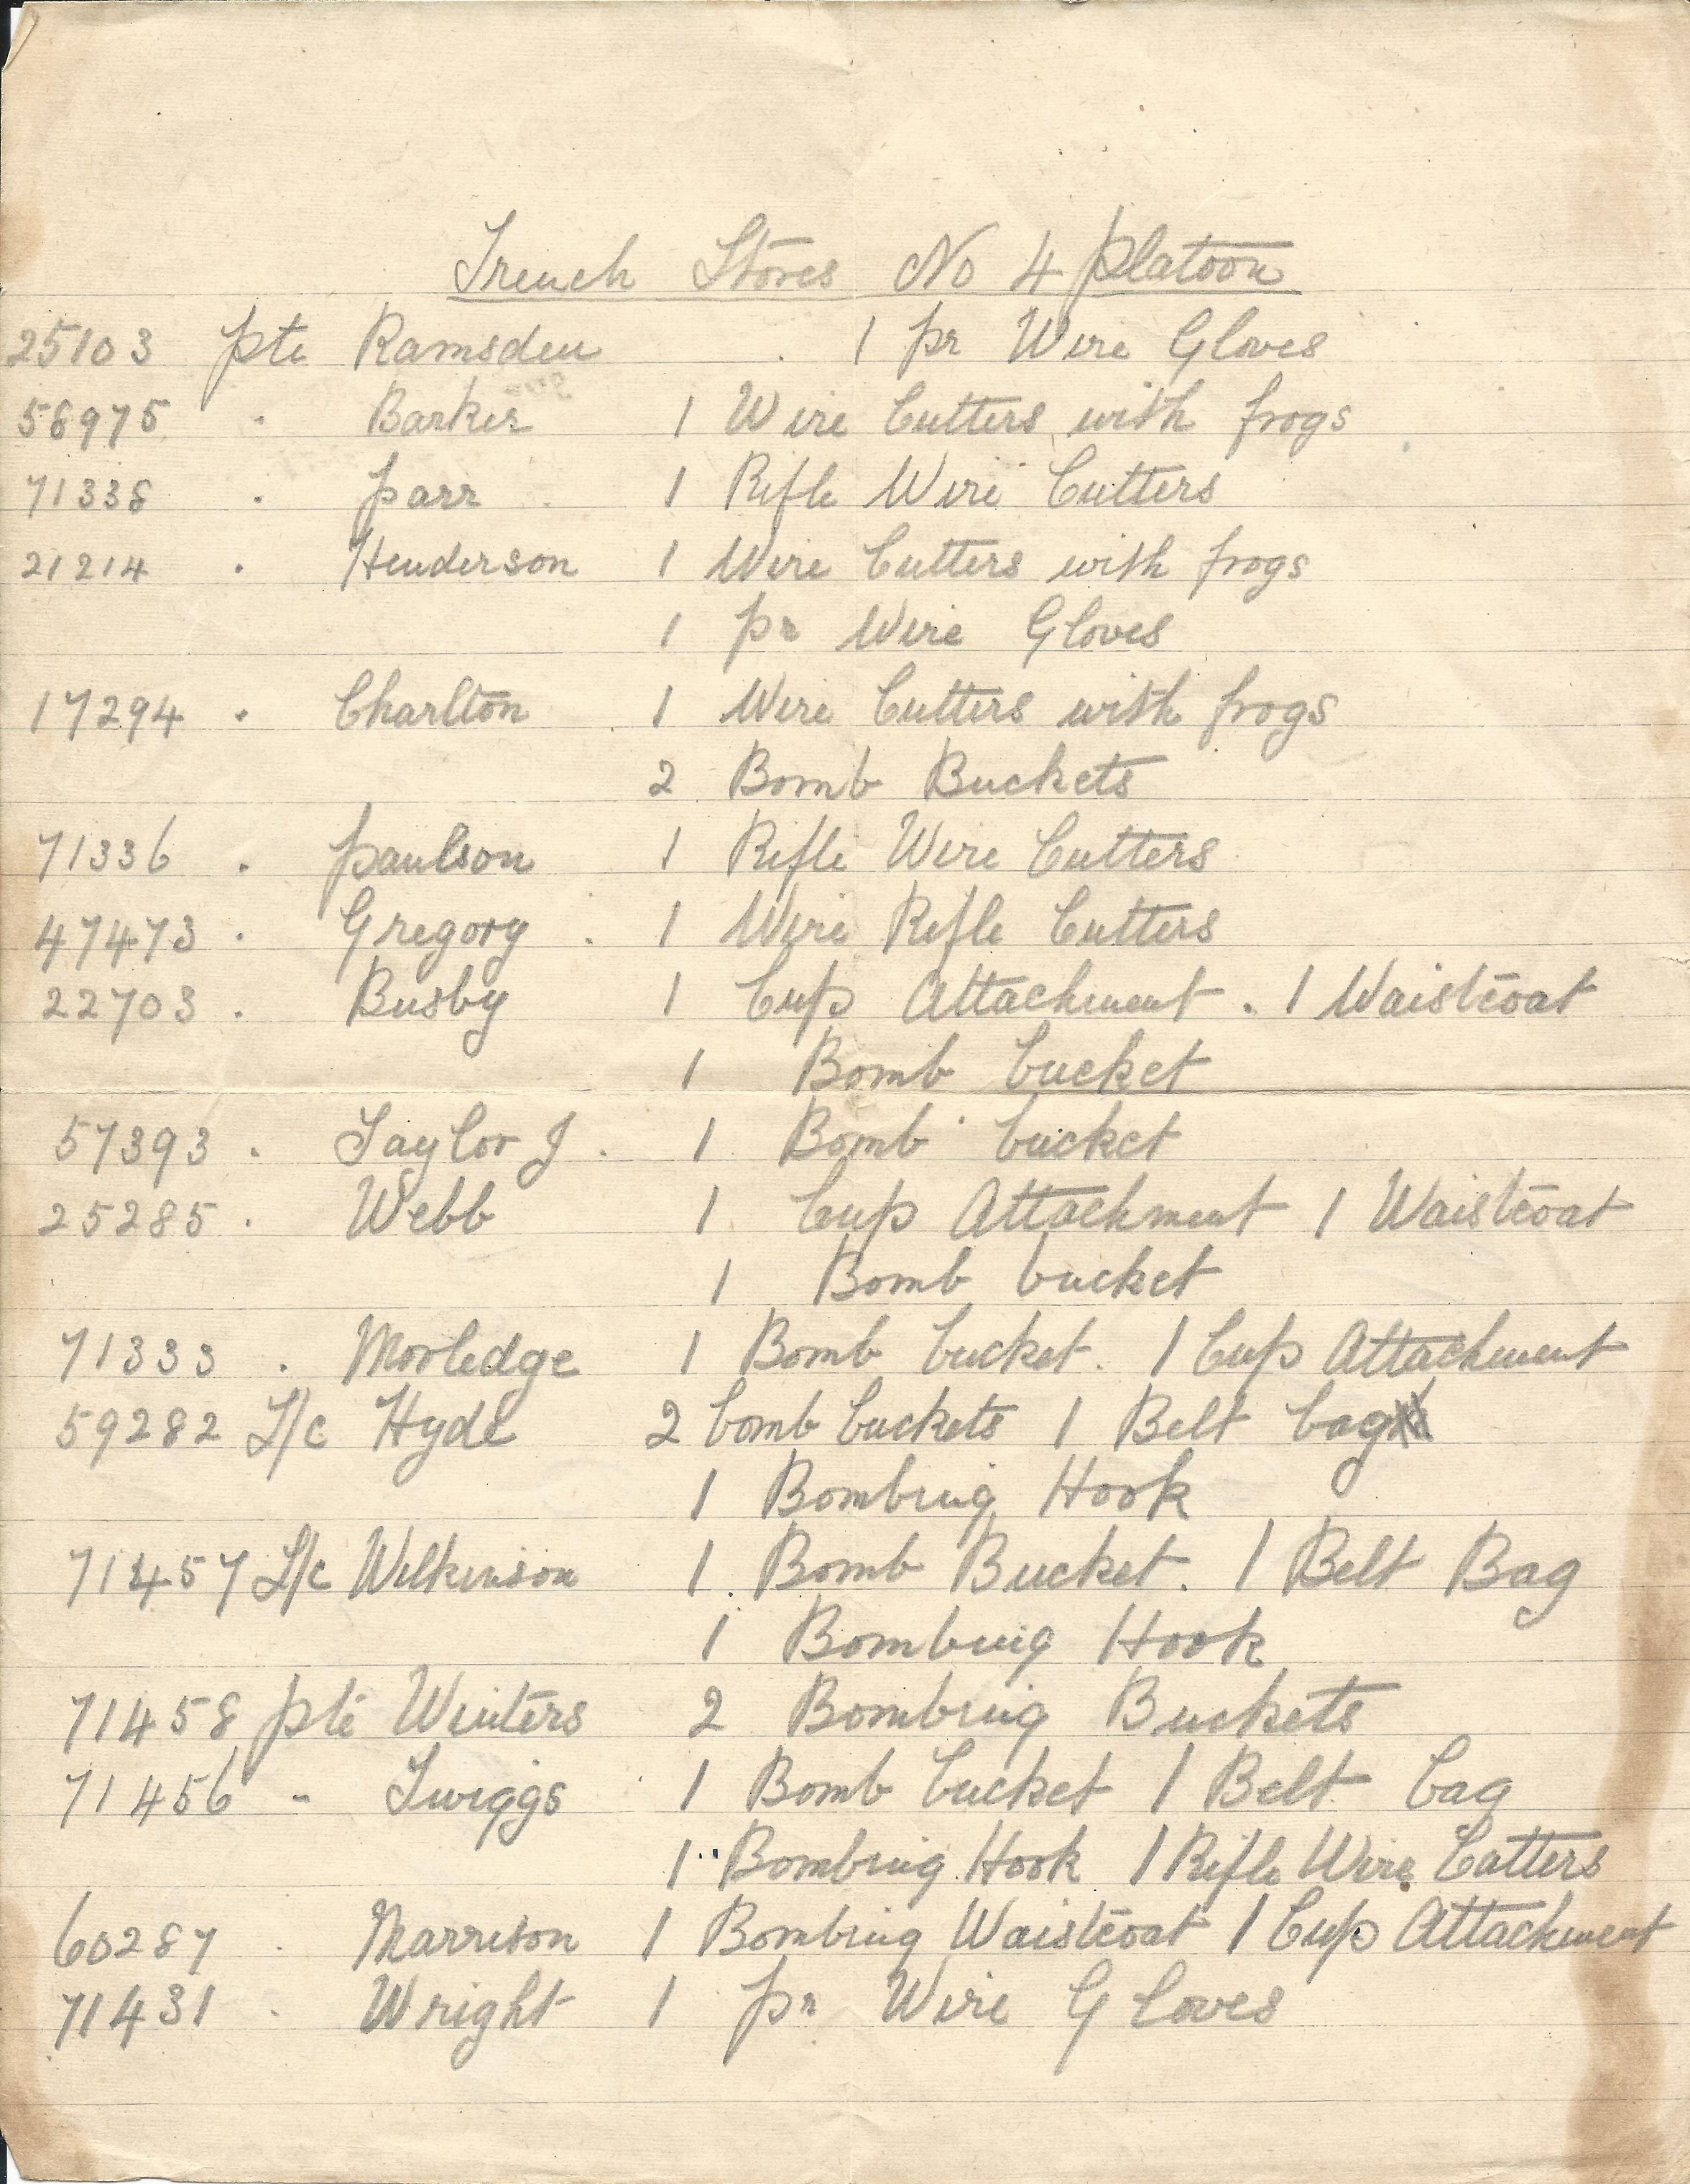 Trench Stores No 4 Platoon
25103 Pte Ramsden . 1 pr Wire Gloves
58975 . Barker 1 Wire Cutters with frogs
71338 . Parr 1 Rifle Wire Cutters
21214 . Henderson 1 Wire Cutters with frogs
1 pr Wire Gloves
17294 . Charlton 1 Wire Cutters with frogs
2 Bomb Buckets
71336 . Paulson 1 Rifle Wire Cutters
47473 . Gregory . 1 Wire Rifle Cutters
22703 . Busby 1 Cup Attachment . 1 Waistcoat
1 Bomb bucket
57393 . Taylor J . 1 Bomb bucket
25285 . Webb 1 Cup Attachment 1 Waistcoat
1 Bomb bucket
71333 . Morledge 1 Bomb bucket. 1 Cup Attachment
59282 L/c Hyde 2 bomb buckets 1 Belt bag
1 Bombing Hook
71457 L/c Wilkinson 1 . Bomb Bucket. 1 Belt Bag
1 Bombing Hook
71458 Pte Winters 2 Bombing Buckets
71456 - Twiggs 1 Bomb bucket 1 Belt bag
1 Bombing Hook 1 Rifle Wire Cutters
60287 . Marrison 1 Bombing Waistcoat 1 Cup Attachment
71431 . Wright 1 pr Wire Gloves